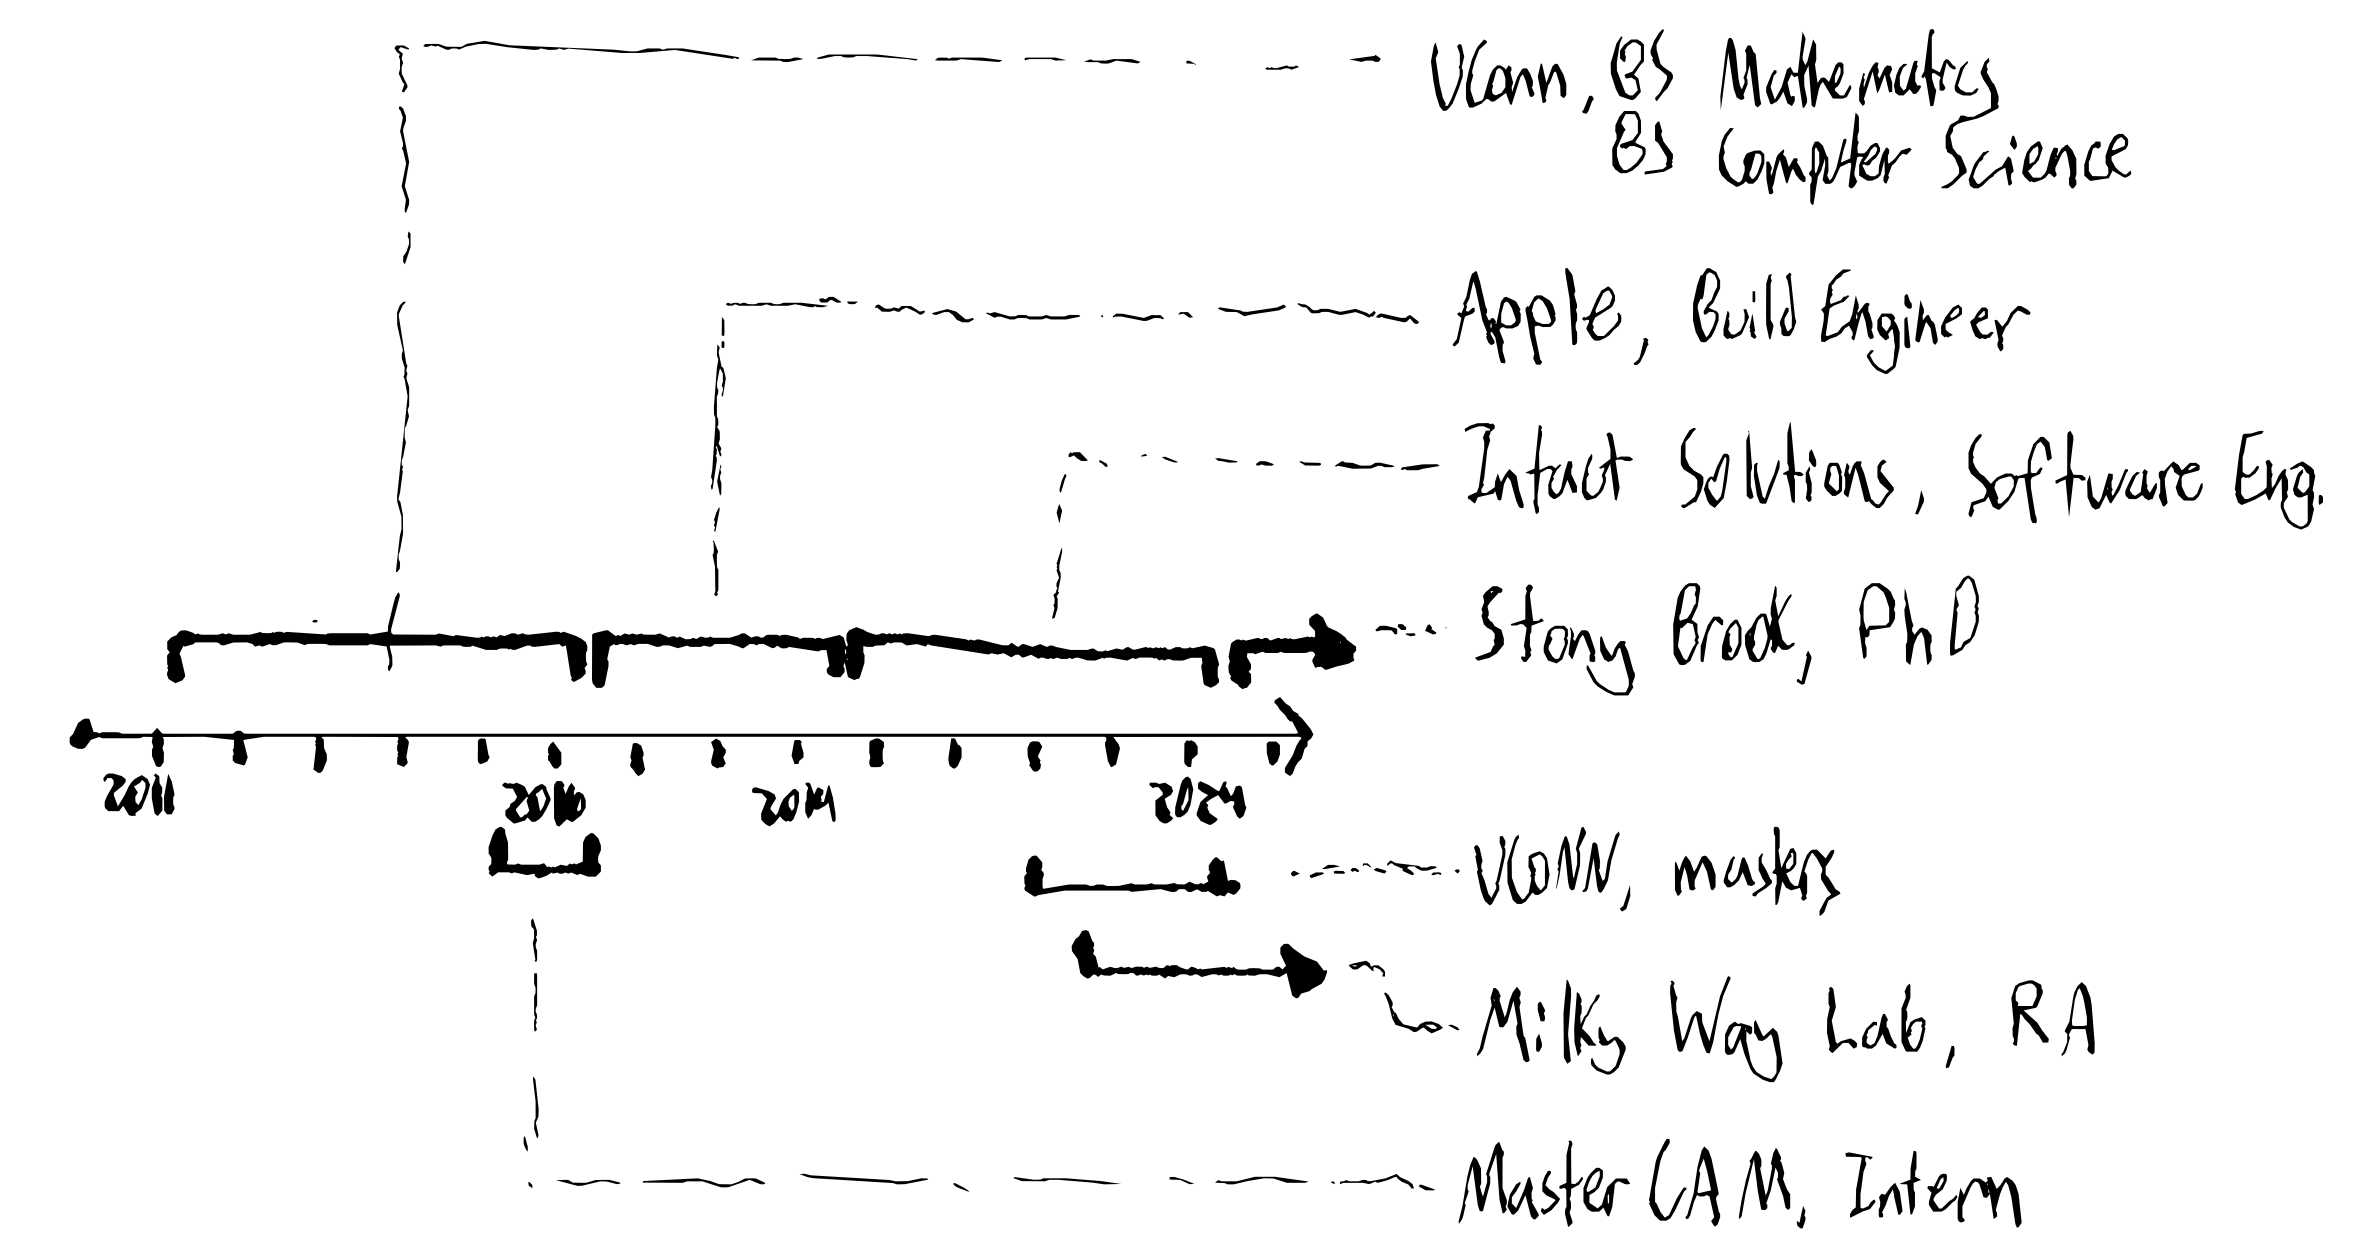 UConn, BS Mathematics
BS Computer Science
Apple, Build Engineer
Intact Solutions, Software Eng.
Stony Brook, PhD
2011 2016 2019 2024
UCONN, masters
Milky Way Lab, RA
MasterCAM, Intern